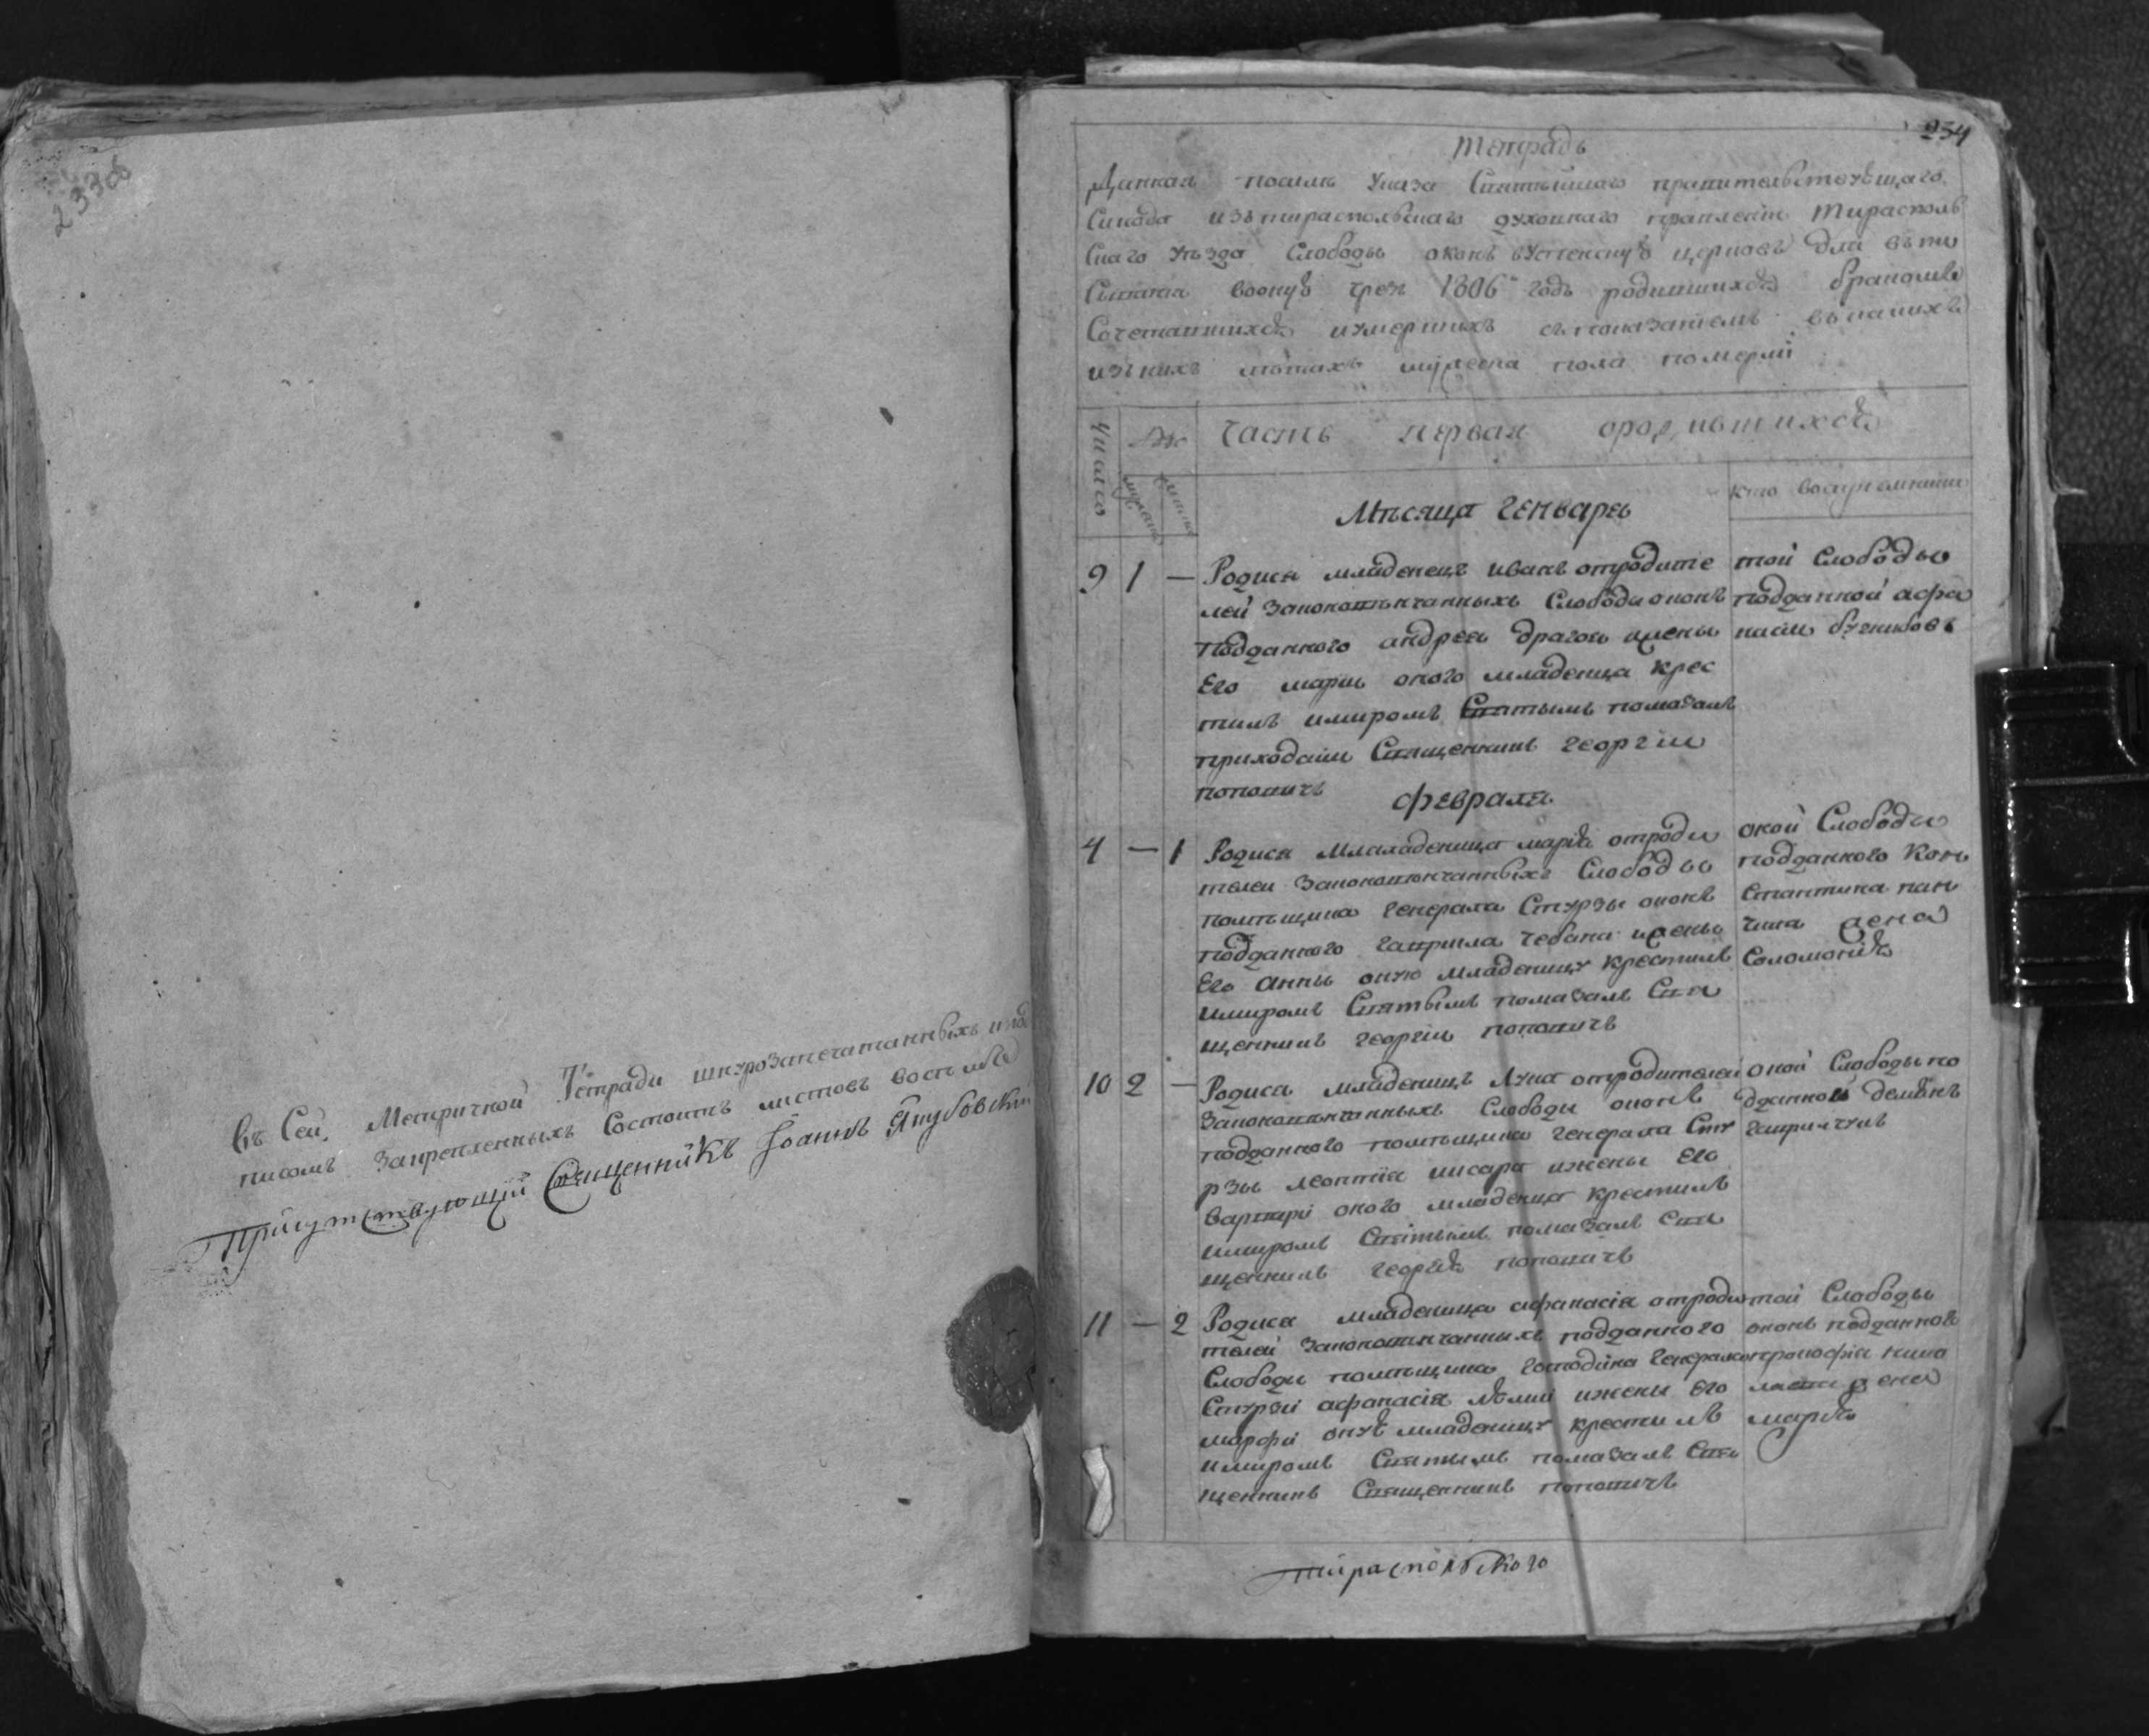 233об
Въ Сей Метричной Тетради шнурозапечатанныхъ и под
писомъ закрепленныхъ состоитъ листовъ восемь
Присутствующий Священникъ Иоаннъ Якубовский
234
Тетрадь
Данная посиле указа Святейшаго правительствующаго
Синода изътираспольскаго духовнаго правления Тирасполь
скаго уезда Слободы оконъ вУспенскую церковь для въпи
сывания вооную чрезъ 1806 годъ родившихся бракомъ
Сочетавшихся иумершихъ съпоказаниемъ въкакихъ
изънихъ летахъ мужеска пола померли
Число
Част первая ородившихся
мужеска
женска
Месяца генваря
кто восприемники
9 1 — Родися младенецъ иванъ отродите
лей законовенчанныхъ Слободы оконъ
подданного андрея драгои ижены
Его марии оного младенца крес
тилъ имиромъ Святымъ помазалъ
приходский Священникъ георгии
поповичъ
той Слободы
подданной афа
насии
февраля
4 — 1 Родися Младеница мария отроди
телеи законовенчанныхъ Слободы
помещика генерала Стурзы оконъ
подданного гаврила чебана ижены
Его анны оную младеницу крестилъ
имиромъ Святымъ помазалъ Свя
щенникъ георгии поповичъ
оной Слободы
подданного Кон
стантина пан
жена
Соломония
10 2 — Родися младенецъ лука отродителей
законовенчанныхъ Слободы оконъ
подданного помещика генерала Сту
рзы леонтия писаря ижены Его
варвари оного младенца крестилъ
имиромъ Святымъ помазалъ Свя
щенникъ георгий поповичъ
оной Слободы по
дданной демянъ
гаврилчукъ
11 — 2 Родися младеница афанасия отроди
телей законовенчанныхъ подданного
Слободы помещика господина генерала
Стурзи афанасия ижени Его
марфи оную младеницу крестилъ
имиромъ Святымъ помазалъ Свя
щенникъ Священникъ поповичъ
той Слободы
оконъ подданного
прокофия
жена
мария
Тираспольского